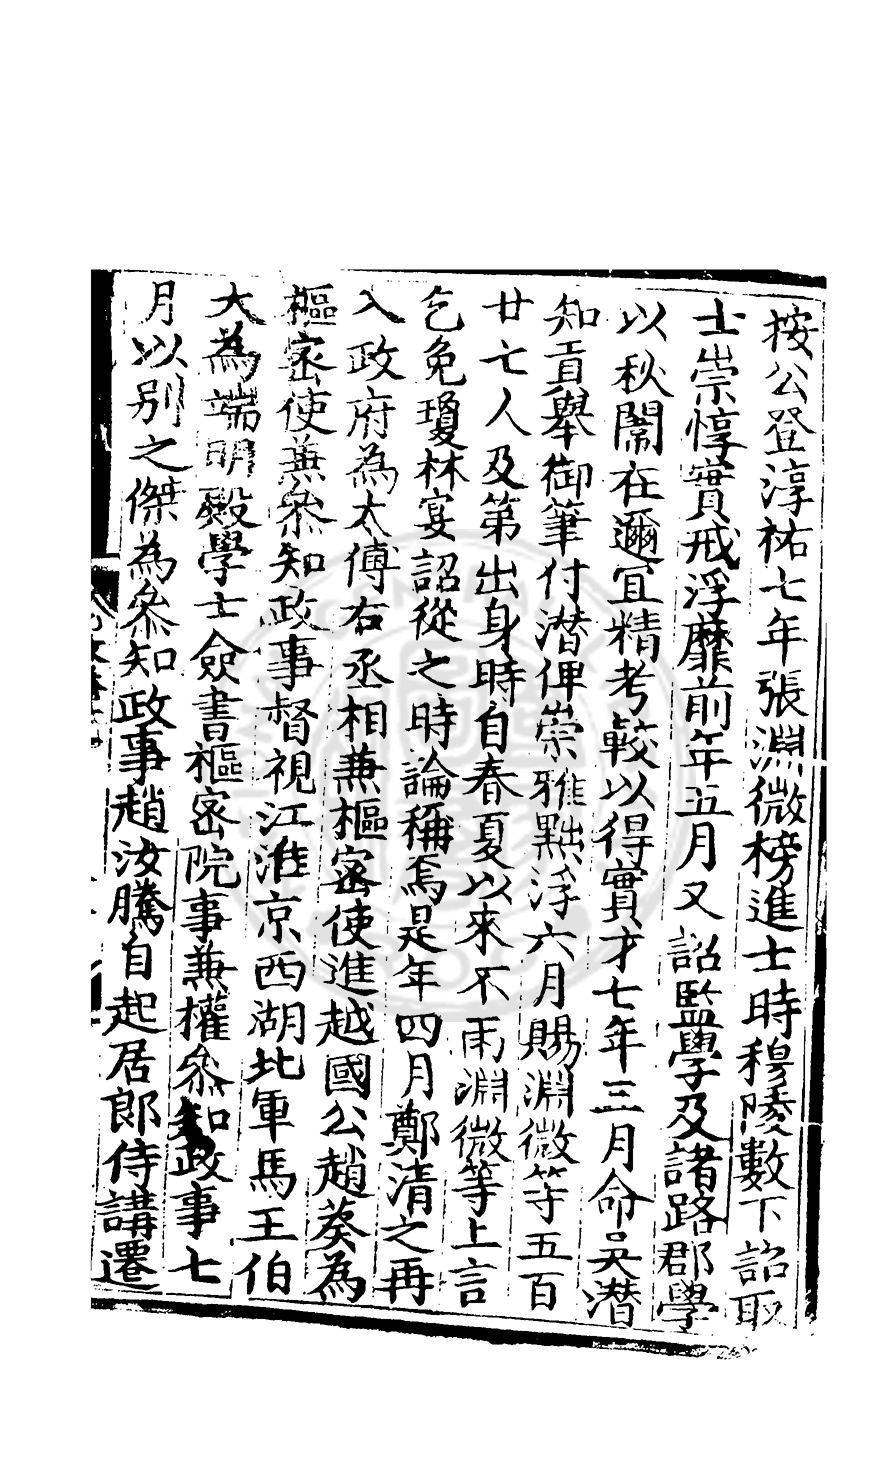 按公登淳祐七年張淵微榜進士時穆陵數下詔取
士崇惇實戒浮靡前年五月又詔監學及諸路郡學
以秋闈在邇宜精考較以得實才七年三月命吳潛
知貢舉御筆付潛俾崇雅黜浮六月賜淵微等五百
廿七人及第出身時自春夏以來不雨淵微等上言
乞免瓊林宴詔從之時論稱焉是年四月鄭清之再
入政府為太傅右丞相兼樞密使進越國公趙葵為
樞密使兼叅知政事督視江淮京西湖北軍馬王伯
大為端明殿學士僉書樞密院事兼權叅知政事七
月以別之傑為叅知政事趙汝騰自起居郎侍講遷